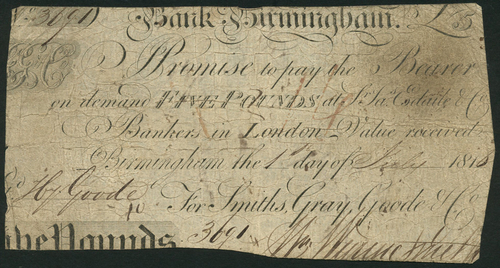 No. 3691 Bank Birmingham. £5
I Promise to pay the Bearer
on demand FIVE POUNDS at Sr. Jas. Esdaile & Co.
Bankers in London Value received
Birmingham the 1st day of July 181
Hy Goode
For Smiths, Gray, Goode & Co.
ive Pounds 3691